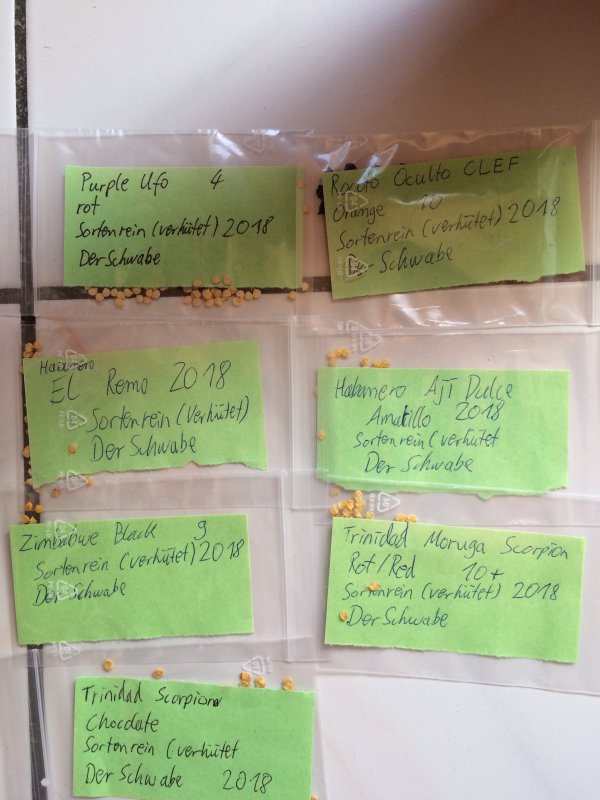 Purple Ufo 4
rot
Sortenrein (verhütet) 2018
Der Schwabe
Rocoto Oculto CLEF
Orange 10
Sortenrein (verhütet) 2018
Der Schwabe
Habanero
EL Remo 2018
Sortenrein (Verhütet)
Der Schwabe
Habanero AJI Dulce
Amarillo 2018
Sortenrein (verhütet
Der Schwabe
Zimbabwe Black 9
Sortenrein (verhütet) 2018
Der Schwabe
Trinidad Moruga Scorpion
Rot/Red 10+
Sortenrein (verhütet) 2018
Der Schwabe
Trinidad Scorpion
Chocolate
Sortenrein (verhütet
Der Schwabe 2018